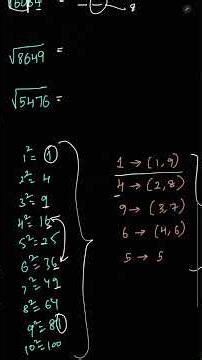 √8649 =
√5476 =
1² = 1
2² = 4
3² = 9
4² = 16
5² = 25
6² = 36
7² = 49
8² = 64
9² = 81
10² = 100
1 → (1, 9)
4 → (2, 8)
9 → (3, 7)
6 → (4, 6)
5 → 5